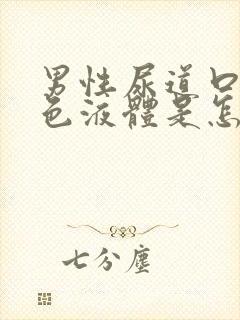 男性尿道口
色液體是怎
七分塵